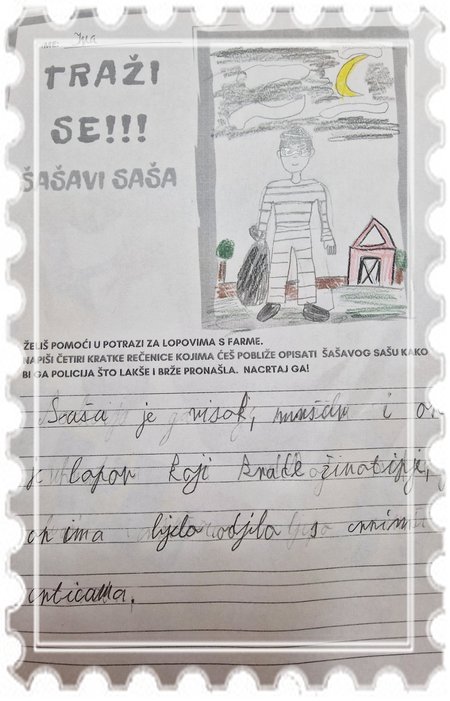 Ina
TRAŽI
SE!!!
ŠAŠAVI SAŠA
ŽELIŠ POMOĆI U POTRAZI ZA LOPOVIMA S FARME.
NAPIŠI ČETIRI KRATKE REČENICE KOJIMA ĆEŠ POBLIŽE OPISATI ŠAŠAVOG SAŠU KAKO
BI GA POLICIJA ŠTO LAKŠE I BRŽE PRONAŠLA. NACRTAJ GA!
Saša je visok, i
lopov koji krade životinje,
on ima bijelo odjelo s crnim
crticama.